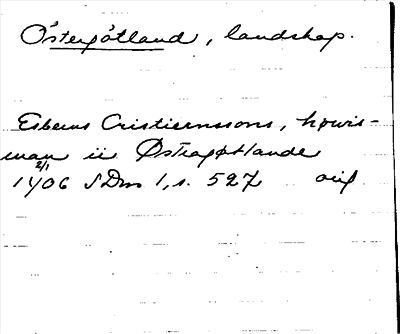 Östergötland, landskap.
Esberns Cristiernssons, høwis-
man ii Østragøtlande
1406 2/1 SDns 1, s. 527 orig